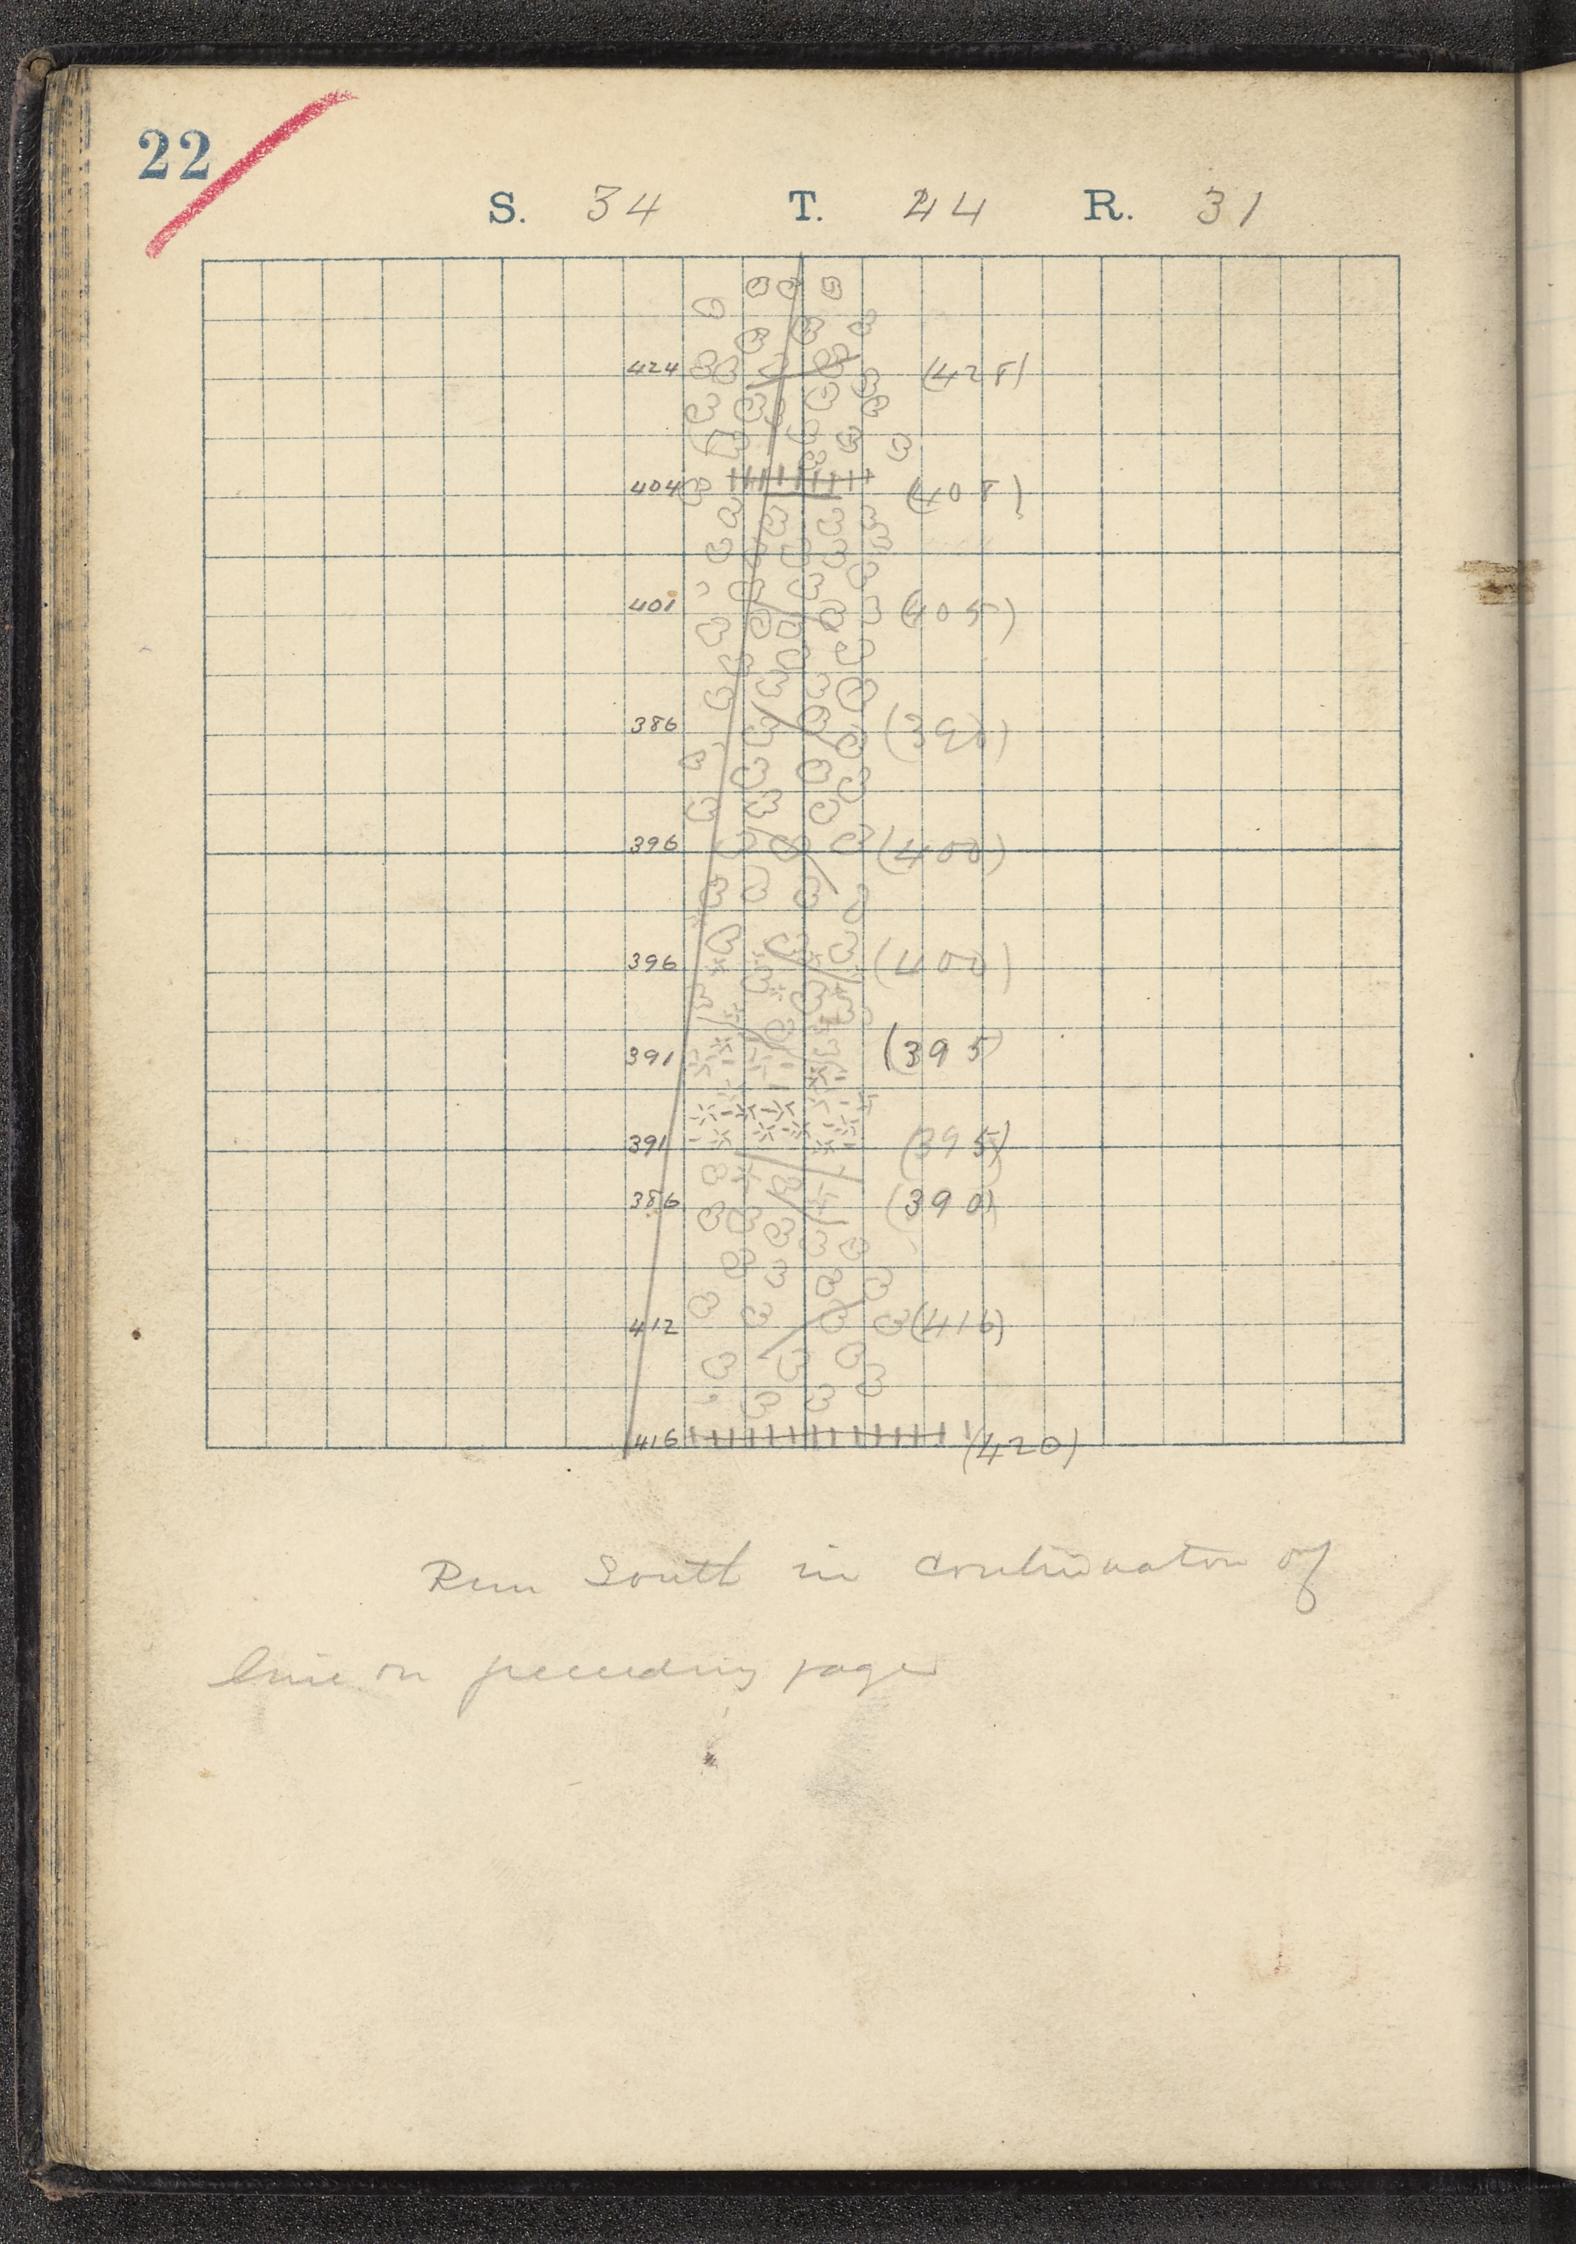 22
S. 34 T. 44 R. 31
424 (428)
404 (408)
401 (405)
386 (390)
396 (400)
396 (400)
391 (395)
391 (395)
386 (390)
412 (416)
416 (420)
Run South in continuaton of
line on preceeding page